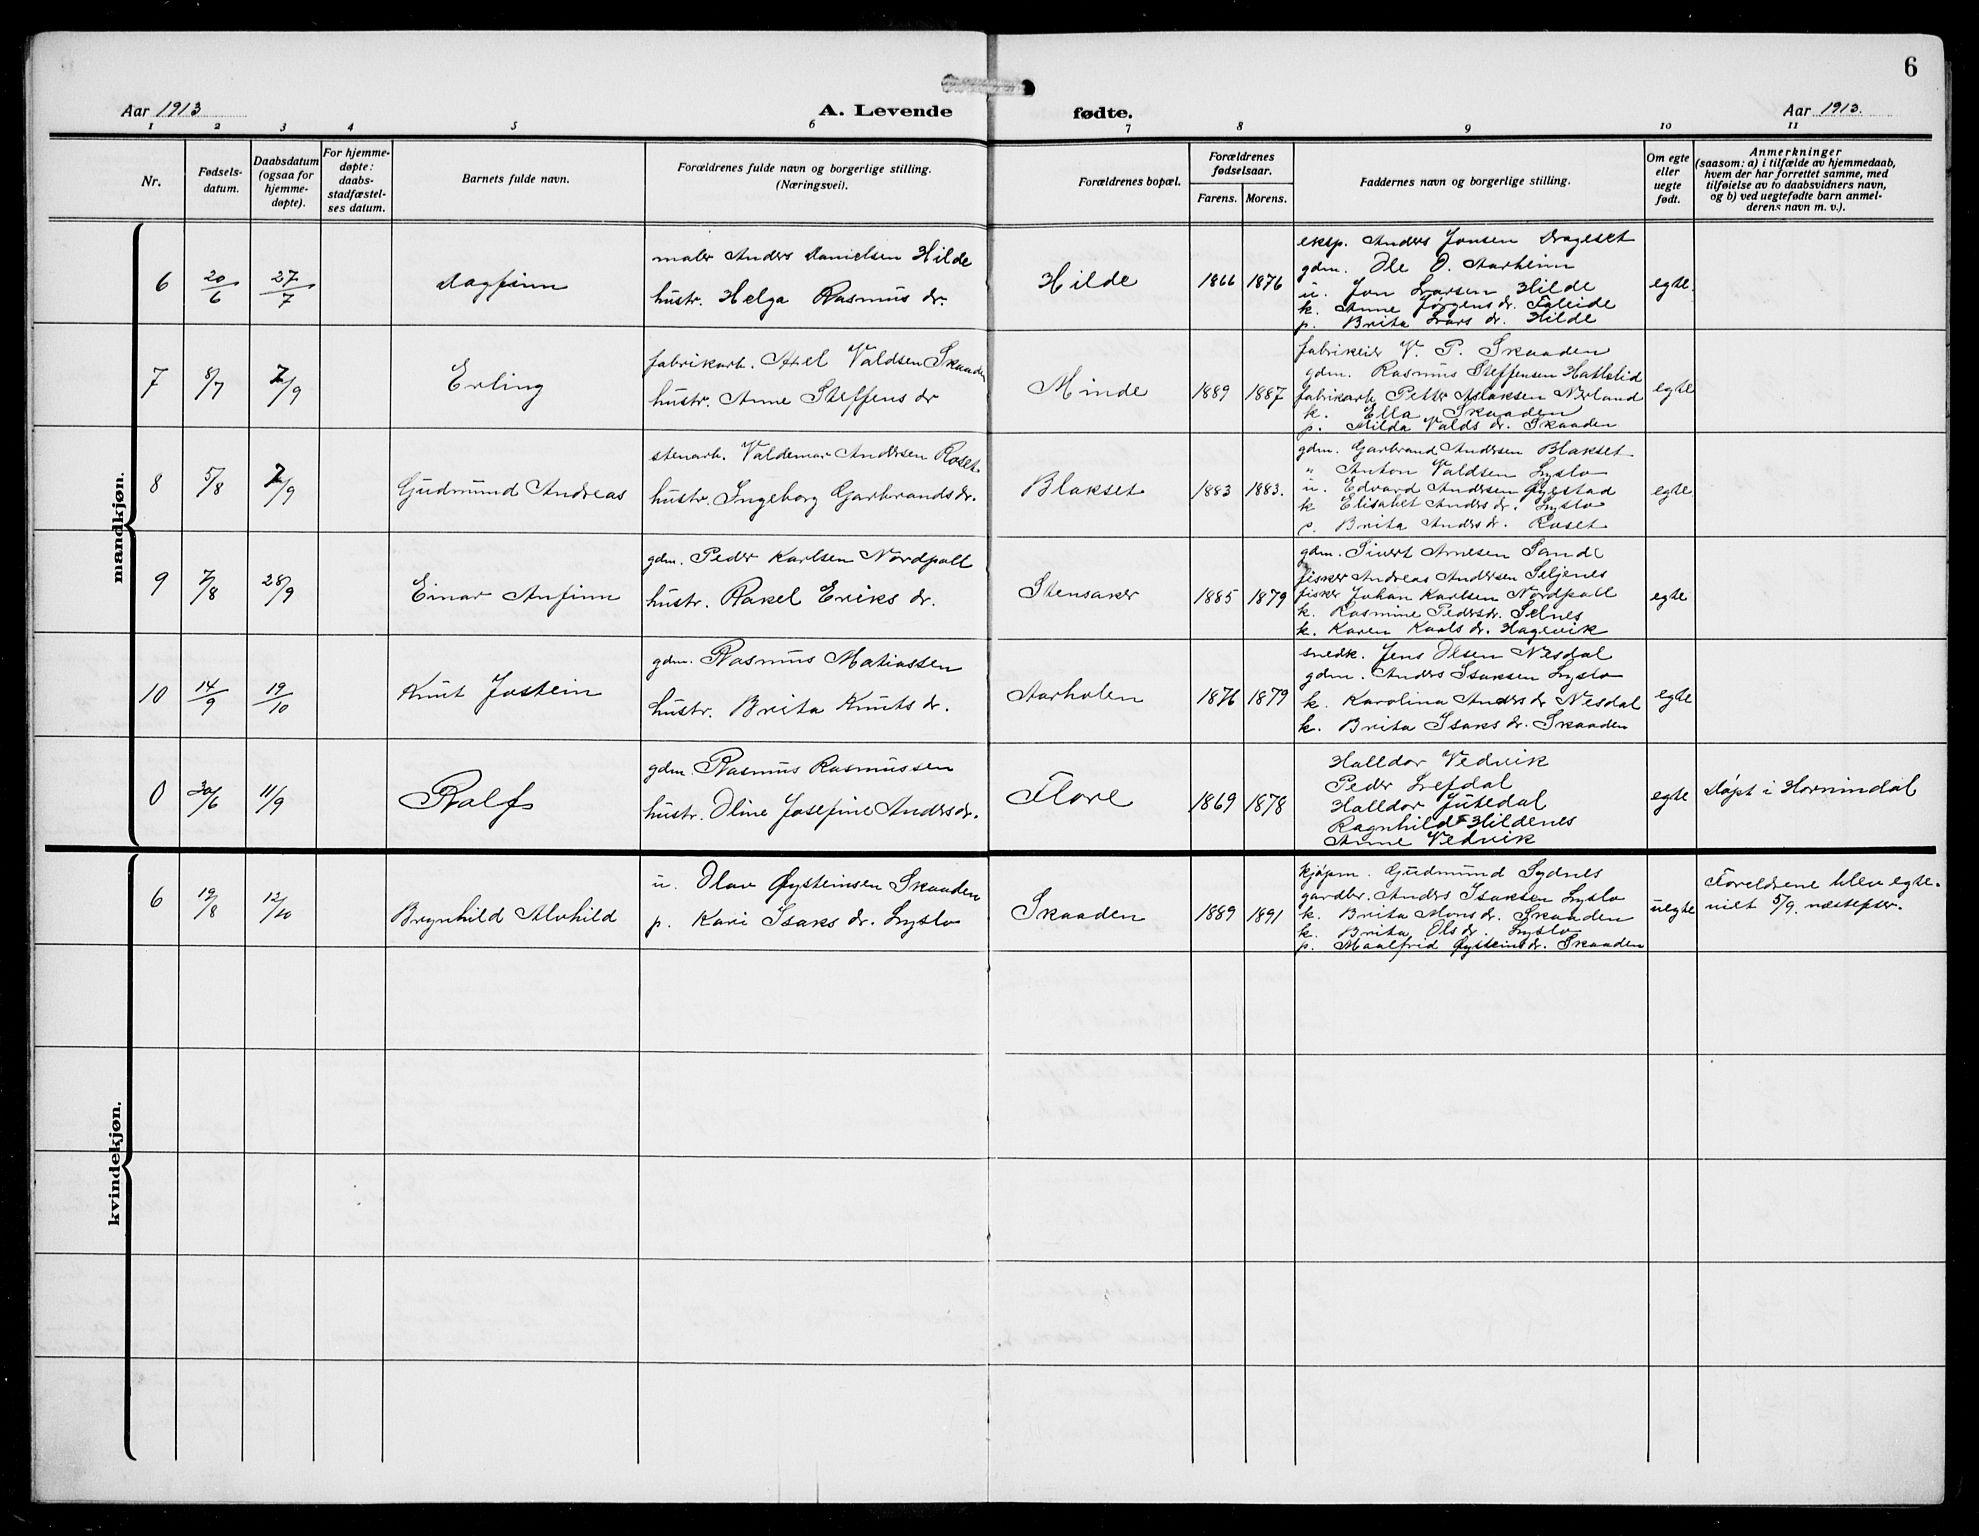 6
Aar 1913
A. Levende fødte.
Aar 1913.
1 2 3 4 5 6 7 8 9 10 11
Nr.
Fødsels-
datum.
Daabsdatum
(ogsaa for
hjemme-
døpte).
For hjemme-
døpte:
daabs-
stadfæstel-
ses datum.
Barnets fulde navn.
Forældrenes fulde navn og borgerlige stilling.
(Næringsvei).
Forældrenes bopæl.
Forældrenes
fødselsaar.
Farens. Morens.
Faddernes navn og borgerlige stilling.
Om egte
eller
uegte
født.
Anmerkninger
(saasom: a) i tilfælde av hjemmedaab,
hvem der har forrettet samme, med
tilføielse av to daabsvidners navn,
og b) ved uegtefødte barn anmel-
derens navn m. v.).
mandkjøn.
6 20/6 27/7 Dagfinn
maler Anders Danielsen Hilde
hustr. Helga Rasmus dr.
Hilde 1866 1876
eksp. Anders Jonsen Drageset
gdm. Ole O. Aarheim
u. Jon Larsen Hilde
k. Anne Jørgens dr. Faleide
p. Brita Lars dr. Hilde
egte
7 8/7 7/9 Erling
fabrikarb. Axel Valdsen Skaaden
hustr. Anne Steffens dr
Minde 1889 1887
fabrikeier V. P. Skaaden
gdm. Rasmus Steffensen Hattelid
fabrikarb. Petter Aslaksen Nerland
k. Ella Skaaden
p. Hilda Valds dr. Skaaden
egte
8 5/8 7/9 Gudmund Andreas
stenarb. Valdemar Andersen Roset
hustr. Ingeborg Garbrands dr.
Blakset 1883 1883.
gdm. Garbrand Andersen Blakset
" Anton Valdsen Lyslo
u. Edvard Andersen Øyestad
k Elisabet Anders dr. Lyslo
p. Brita Anders dr. Roset
egte
9 7/8 28/9 Einar Anfinn
gdm. Peder Karlsen Nordpoll
hustr. Rakel Eriks dr.
Stensaker 1885 1879
gdm. Sivert Arnesen Sande
fisker Andreas Andersen Seljenes
fisker Johan Karlsen Nordpoll
k. Rasmine Pedersdr. Selnes
k. Karen Karls dr. Hagevik
egte
10 14/9 19/10 Knut Jostein
gdm. Rasmus Matiassen
hustr. Brita Knuts dr.
Aarholen 1876 1879
snedk. Jens Olsen Nesdal
gdm. Anders Isaksen Lyslo
k. Karolina Anders dr Nesdal
k. Brita Isaks dr. Skaaden
egte
0 30/6 11/9 Ralf
gdm. Rasmus Rasmussen
hustr. Oline Josefine Anders dr.
Flore 1869 1878
Halldor Vedvik
Peder Lefdal
Halldor Jutedal
Ragnhild Hildenes
Anne Vedvik
egte Døpt i Hornindal
kvindekjøn.
6 19/8 12/10 Brynhild Alvhild
u. Olav Øysteinsen Skaaden
p. Kari Isaks dr. Lyslo
Skaaden 1889 1891
kjøpm. Gudmund Sydnes
gardbr. Anders Isaksen Lyslo
k. Brita Mons dr. Skaaden
k. Brita Ols dr. Lyslo
p. Maalfrid Øysteins dr. Skaaden
uegte
Foreldrene blev egte-
viet 5/9. næstefter.